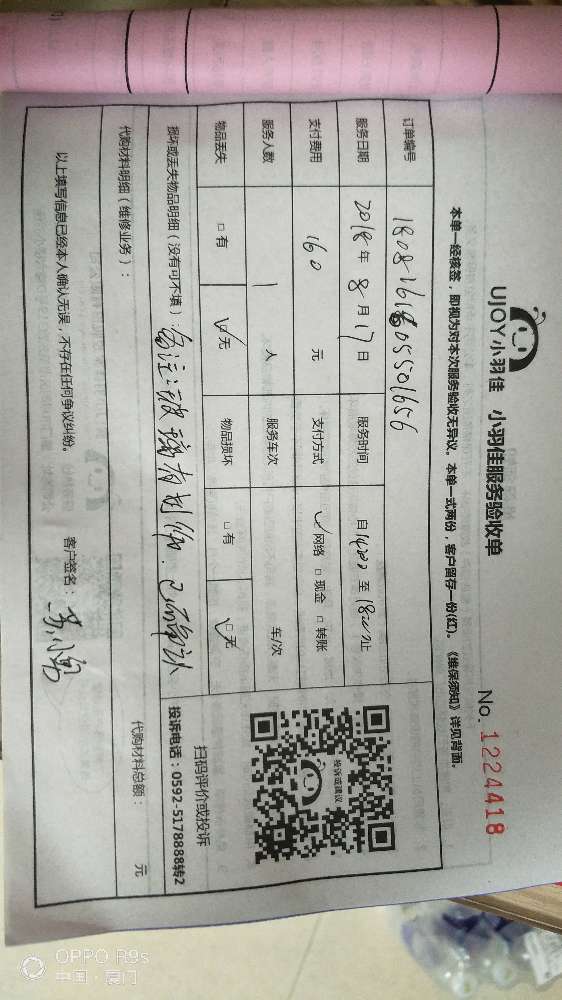 UJOY小羽佳 小羽佳服务验收单
No. 1224418
本单一经核签，即视为对本次服务验收无异议。本单一式两份，客户留存一份(红)。《维保须知》详见背面。
订单编号 1808161805501656
服务日期 2018年8月17日 服务时间 自14:00至18:00止
支付费用 160 元 支付方式 ✓网络 □现金 □转账
服务人数 1 人 服务车次 车/次
物品丢失 □有 ☑无 物品损坏 □有 ☑无
损坏或丢失物品明细（没有可不填）：备注：玻璃有划伤.已确认
投诉或建议
扫码评价或投诉
投诉电话：0592-5178888转2
代购材料明细（维修业务）： 代购材料总额： 元
以上填写信息已经本人确认无误，不存在任何争议纠纷。 客户签名：
OPPO R9s
中国·厦门